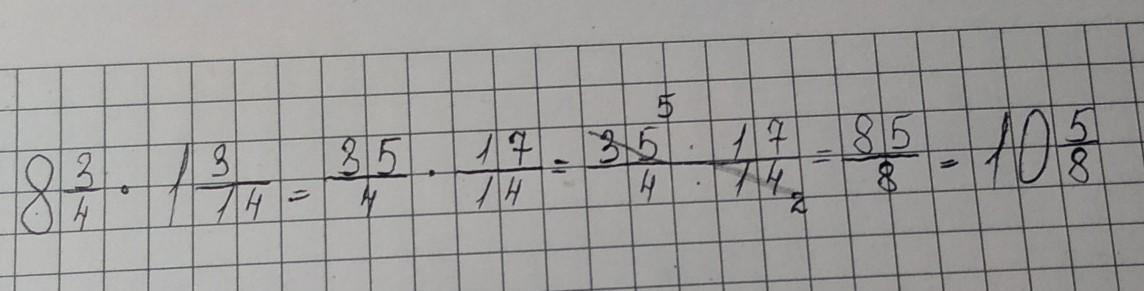 8 3/4 · 1 3/14 = 35/4 · 17/14 = 35 5 · 17/4 · 14 2 = 85/8 = 10 5/8